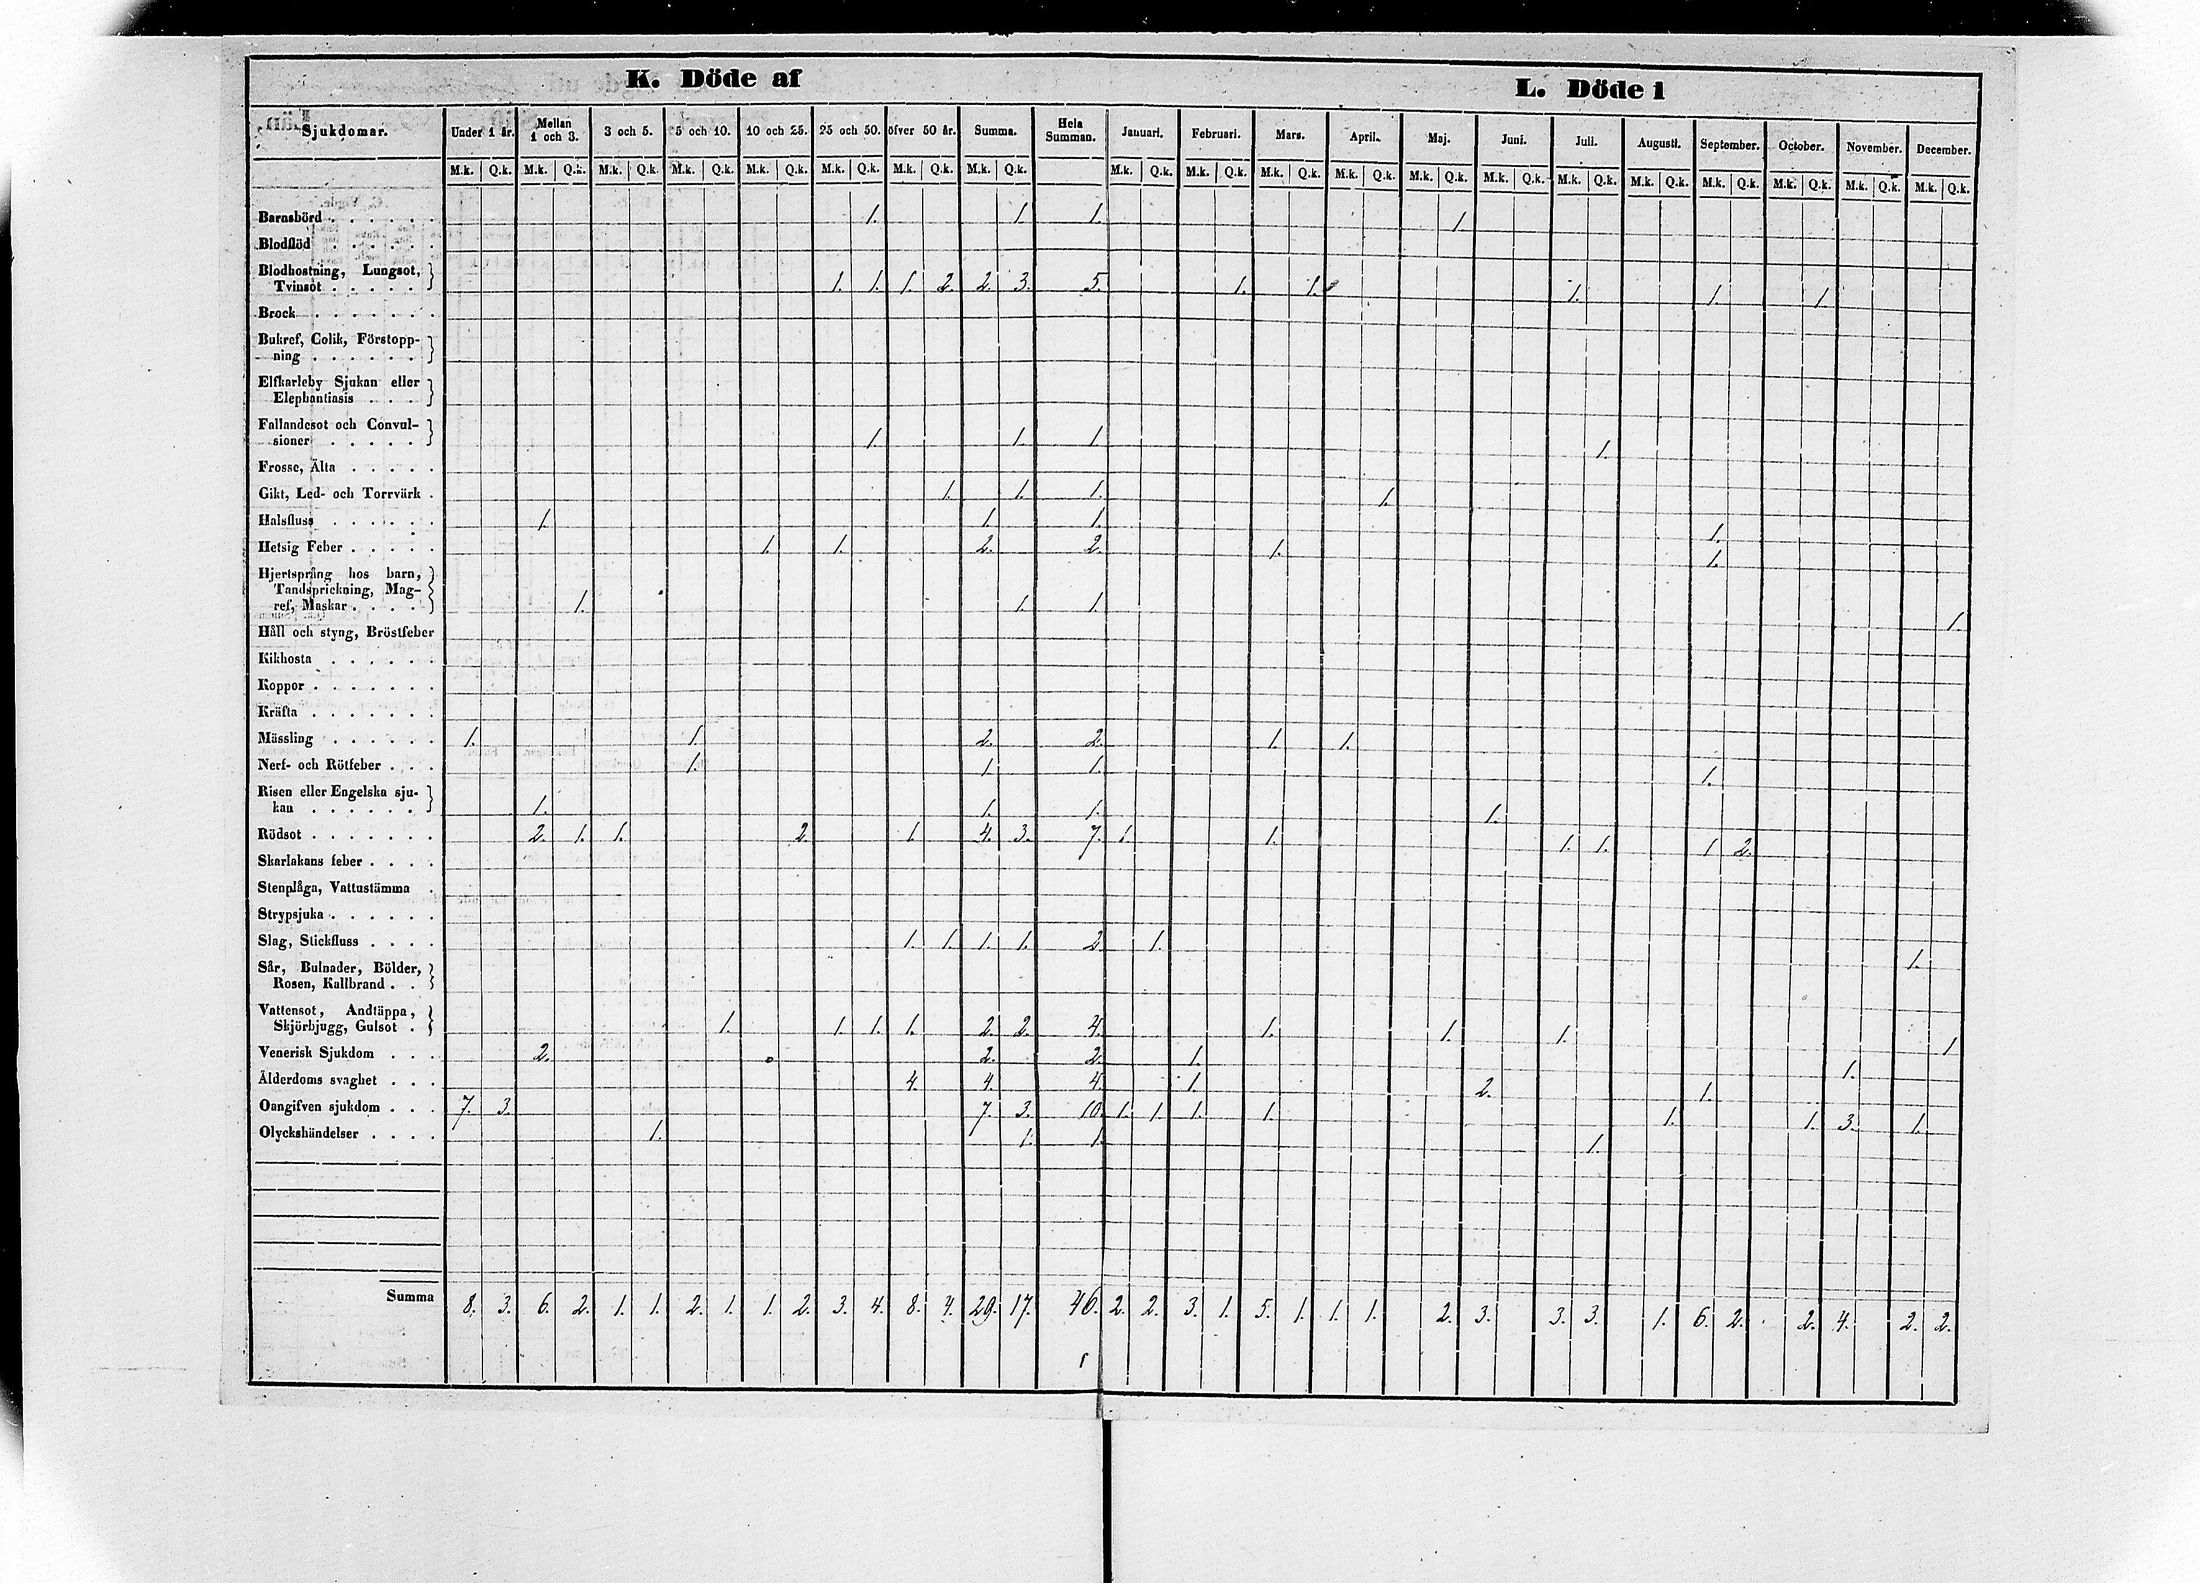 K. Döde af L. Döde i
Sjukdomar. Under 1 år. Mellan 1 och 3. 3 och 5. 5 och 10. 10 och 25. 25 och 50. öfver 50 år. Summa. Hela Summan. Januari. Februari. Mars. April. Maj. Juni. Juli. Augusti. September. October. November. December.
M.k. Q.k. M.k. Q.k. M.k. Q.k. M.k. Q.k. M.k. Q.k. M.k. Q.k. M.k. Q.k. M.k. Q.k. M.k. Q.k. M.k. Q.k. M.k. Q.k. M.k. Q.k. M.k. Q.k. M.k. Q.k. M.k. Q.k. M.k. Q.k. M.k. Q.k. M.k. Q.k. M.k. Q.k. M.k. Q.k.
Barnsbörd . . . . . . 1. 1. 1. 1.
Blodflöd . . . . . .
Blodhostning, Lungsot,
Tvinsot . . . . . 1. 1. 1. 2. 2. 3. 5. 1. 1. 1. 1. 1.
Brock . . . . . . .
Bukref, Colik, Förstopp-
ning . . . . . .
Elfkarleby Sjukan eller
Elephantiasis . . .
Fallandesot och Convul-
sioner . . . . . 1. 1. 1. 1.
Frosse, Älta . . . . .
Gikt, Led- och Torrvärk . 1. 1. 1. 1.
Halsfluss . . . . . . 1. 1. 1. 1.
Hetsig Feber . . . . . 1. 1. 2. 2. 1. 1.
Hjertsprång hos barn,
Tandsprickning, Mag-
ref, Maskar . . . . 1. 1. 1. 1.
Håll och styng, Bröstfeber
Kikhosta . . . . . .
Koppor . . . . . . .
Kräfta . . . . . . .
Mässling . . . . . . 1. 1. 2. 2. 1. 1.
Nerf- och Rötfeber . . . 1. 1. 1. 1.
Risen eller Engelska sju-
kan . . . . . . 1. 1. 1. 1.
Rödsot . . . . . . . 2. 1. 1. 2. 1. 4. 3. 7. 1. 1. 1. 1. 1 2.
Skarlakans feber . . . .
Stenplåga, Vattustämma .
Strypsjuka . . . . . .
Slag, Stickfluss . . . . 1. 1. 1. 1. 2. 1. 1.
Sår, Bulnader, Bölder,
Rosen, Kallbrand . .
Vattensot, Andtäppa,
Skjörbjugg, Gulsot . 1. 1. 1. 1. 2. 2. 4. 1. 1. 1. 1
Venerisk Sjukdom . . . 2. 2. 2. 1. 1.
Ålderdoms svaghet . . . 4. 4. 4. 1. 2. 1.
Oangifven sjukdom . . . 7. 3. 7. 3. 10. 1. 1. 1. 1. 1. 1. 3. 1.
Olyckshändelser . . . . 1. 1. 1. 1.
Summa 8. 3. 6. 2. 1. 1. 2. 1. 1. 2. 3. 4. 8. 4. 29. 17. 46. 2. 2. 3. 1. 5. 1. 1. 1. 2. 3. 3. 3. 1. 6. 2. 2. 4. 2. 2.